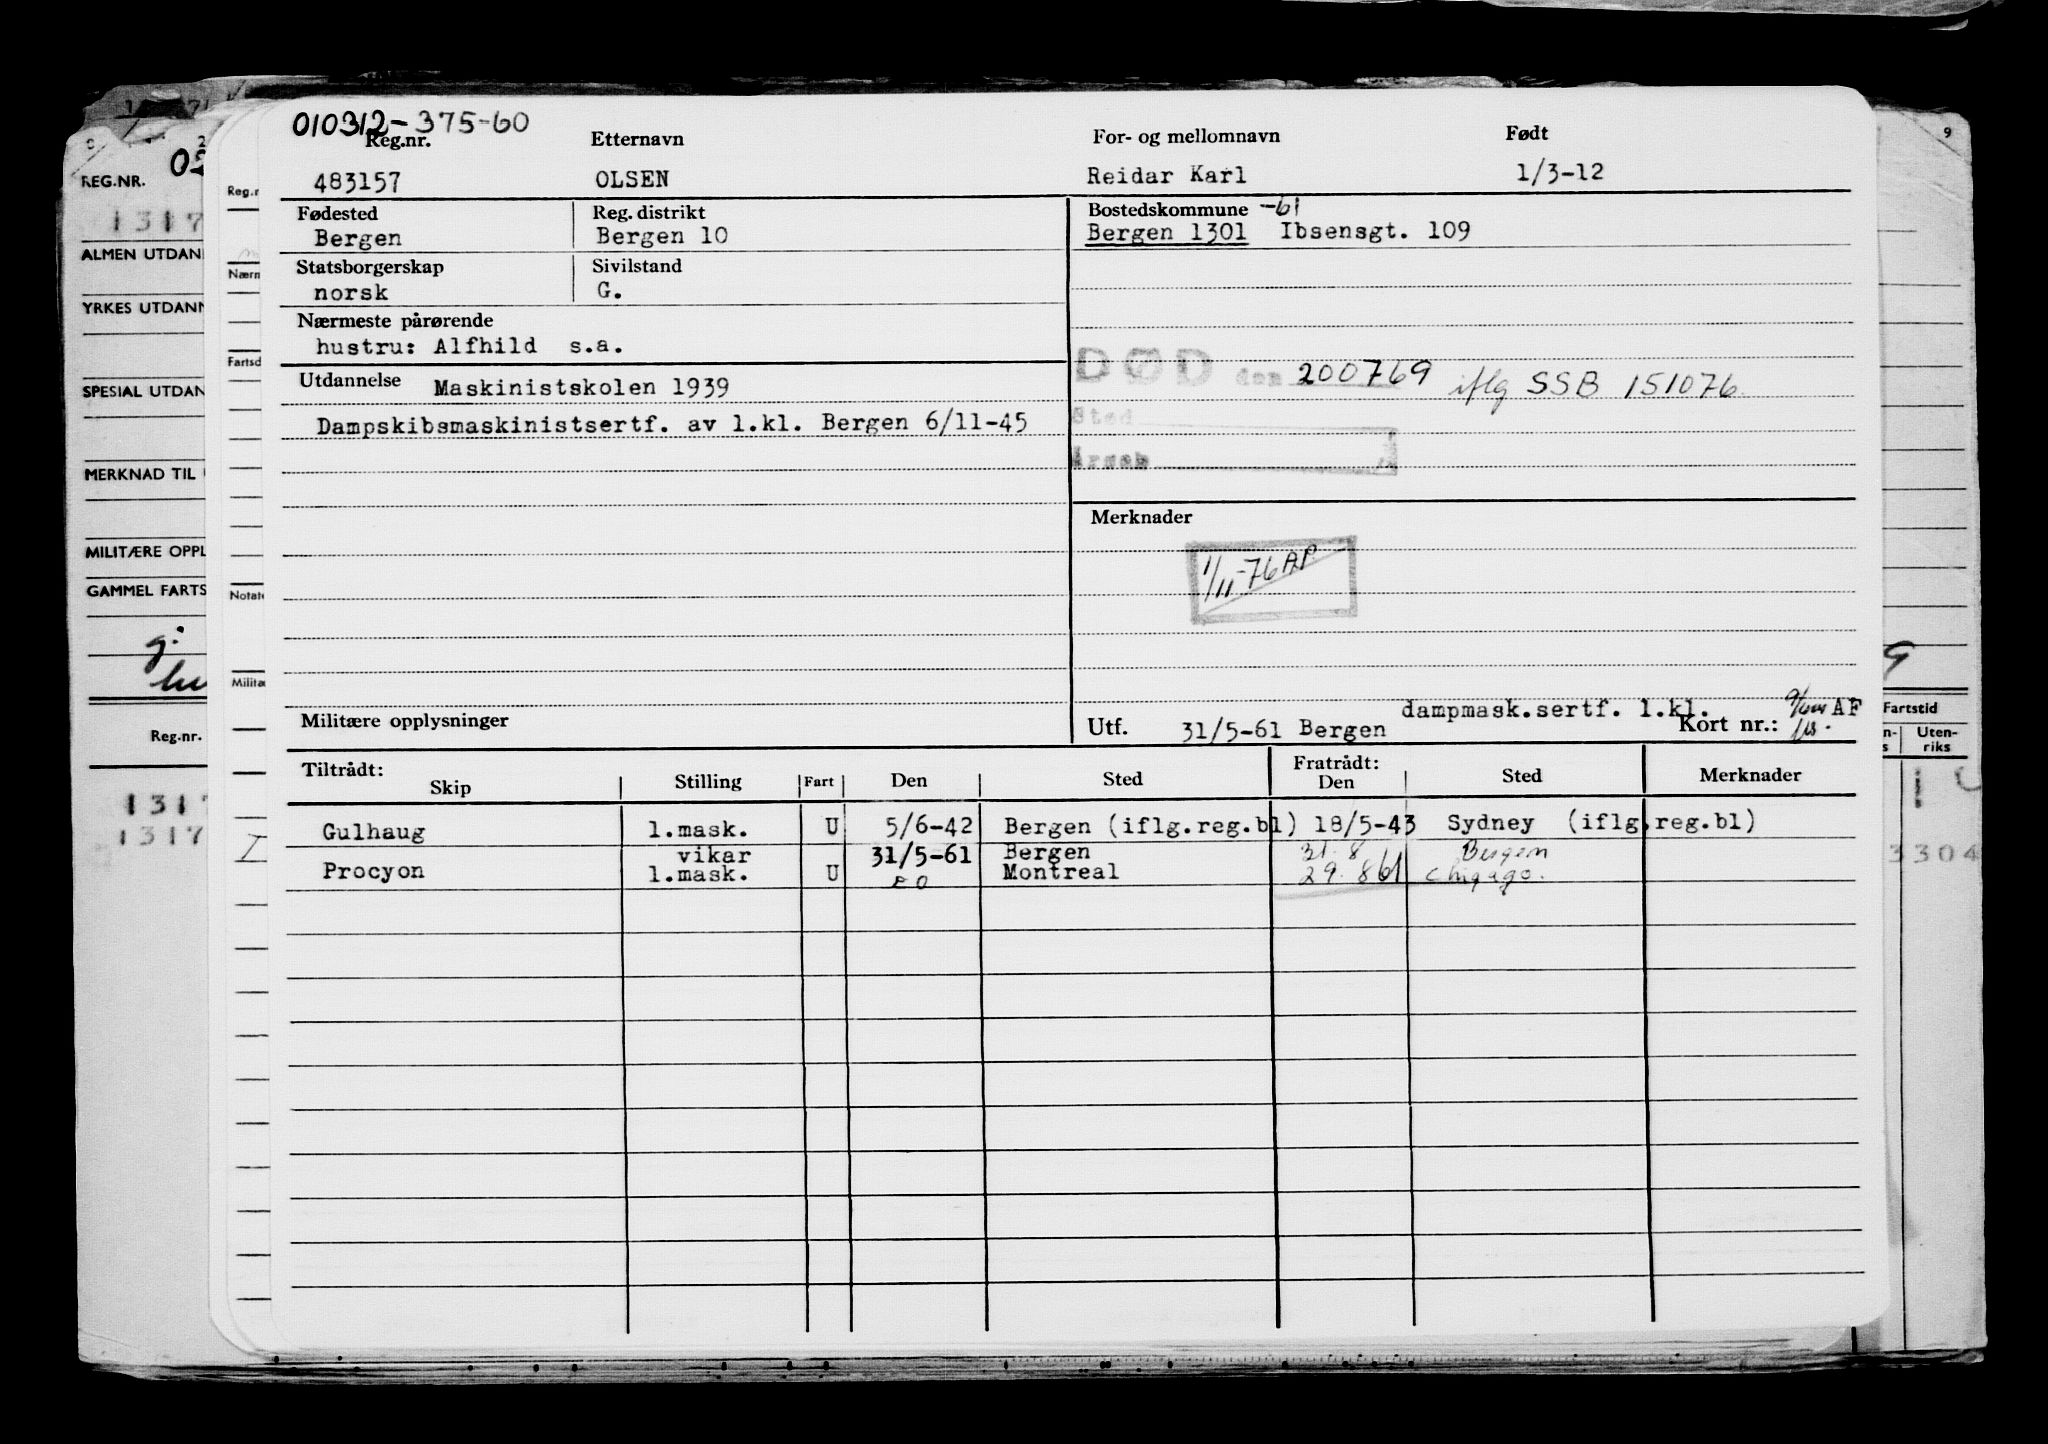 010312-375-60
Reg.nr. Etternavn For- og mellomnavn Født
483157 OLSEN Reidar Karl 1/3-12
Fødested Reg. distrikt Bostedskommune -61
Bergen Bergen 10 Bergen 1301 Ibsensgt. 109
Statsborgerskap Sivilstand
norsk G.
Nærmeste pårørende
hustru: Alfhild s.a.
DØD den 200769 iflg SSB 151076
Utdannelse Maskinistskolen 1939
Sted
Dampskibsmaskinistsertf. av 1.kl. Bergen 6/11-45
Årsak
Merknader
1/11-76 AP
dampmask.sertf. 1.kl. AF
Militære opplysninger Utf. 31/5-61 Bergen Kort nr.:
Tiltrådt: Fratrådt:
Skip Stilling Fart Den Sted Den Sted Merknader
Gulhaug 1.mask. U 5/6-42 Bergen (iflg.reg.bl) 18/5-43 Sydney (iflg.reg.bl)
vikar 31/5-61 Bergen 31.8 Bergen
Procyon 1.mask. U Montreal 29.861 Chigago.
REG.NR.
1317
ALMEN UTDAN
YRKES UTDANN
SPESIAL UTDAN
MERKNAD TIL
MILITÆRE OPPL
GAMMEL FARTS
Reg.nr.
1317
1317
Reg.n
Nærm
Fartsd
Notate
Militæ
I
9
9
Fartstid
Uten-
riks
3304